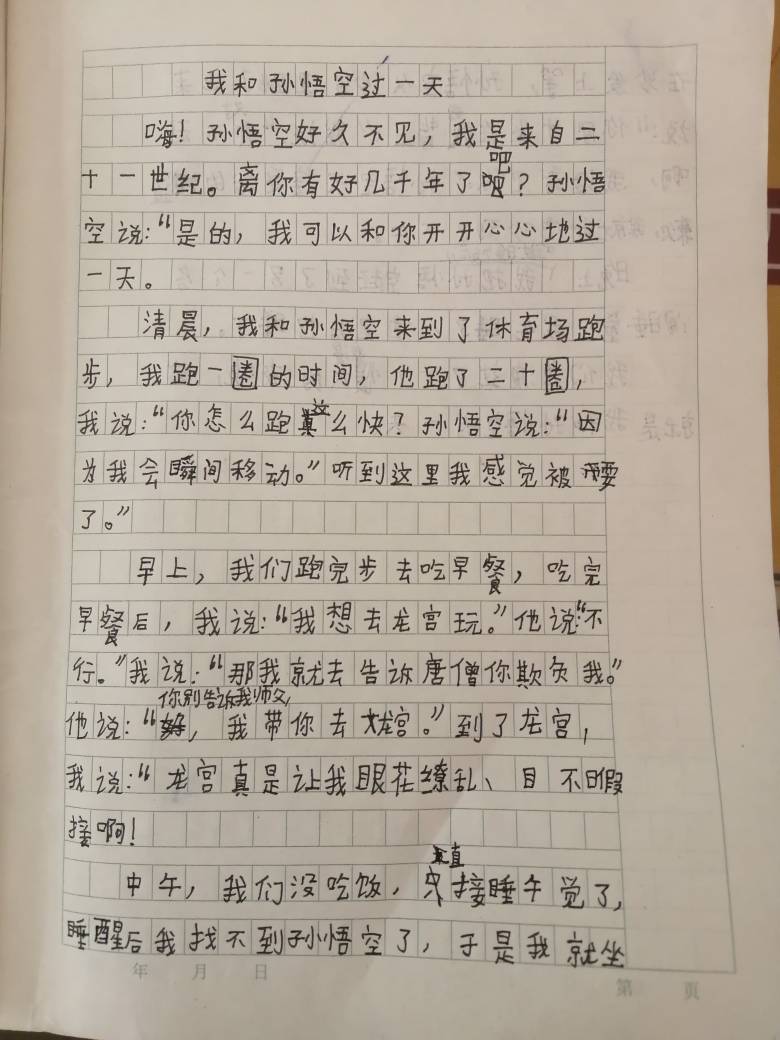 我和孙悟空过一天
嗨！孙悟空好久不见，我是来自二
十一世纪。离你有好几千年了吧？孙悟
空说：“是的，我可以和你开开心心地过
一天。
清晨，我和孙悟空来到了体育场跑
步，我跑一圈的时间，他跑了二十圈，
我说：“你怎么跑这么快？孙悟空说：“因
为我会瞬间移动。”听到这里我感觉被耍
了。”
早上，我们跑完步去吃早餐，吃完
早餐后，我说：“我想去龙宫玩。”他说“不
行。”我说：“那我就去告诉唐僧你欺负我。”
他说：“你别告诉我师父，我带你去龙宫。”到了龙宫，
我说：“龙宫真是让我眼花缭乱、目不暇
接啊！
中午，我们没吃饭，直接睡午觉了，
睡醒后我找不到孙悟空了，于是我就坐
年 月 日
第 页